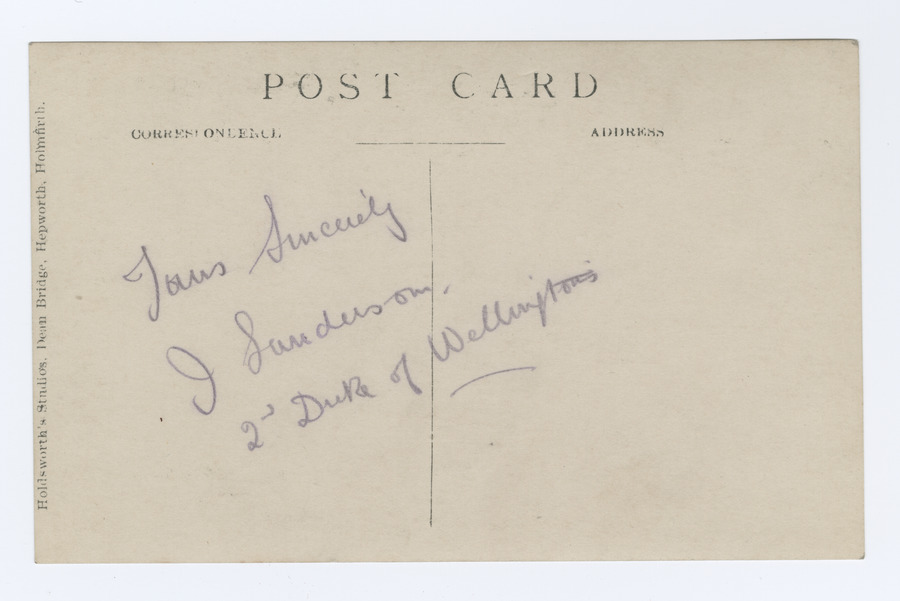 POST CARD
CORRESPONDENCE
ADDRESS
Holdsworth's Studios, Dean Bridge, Hepworth, Holmfirth.
Yours Sincerely
J Sanderson.
2d Duke of Wellingtons